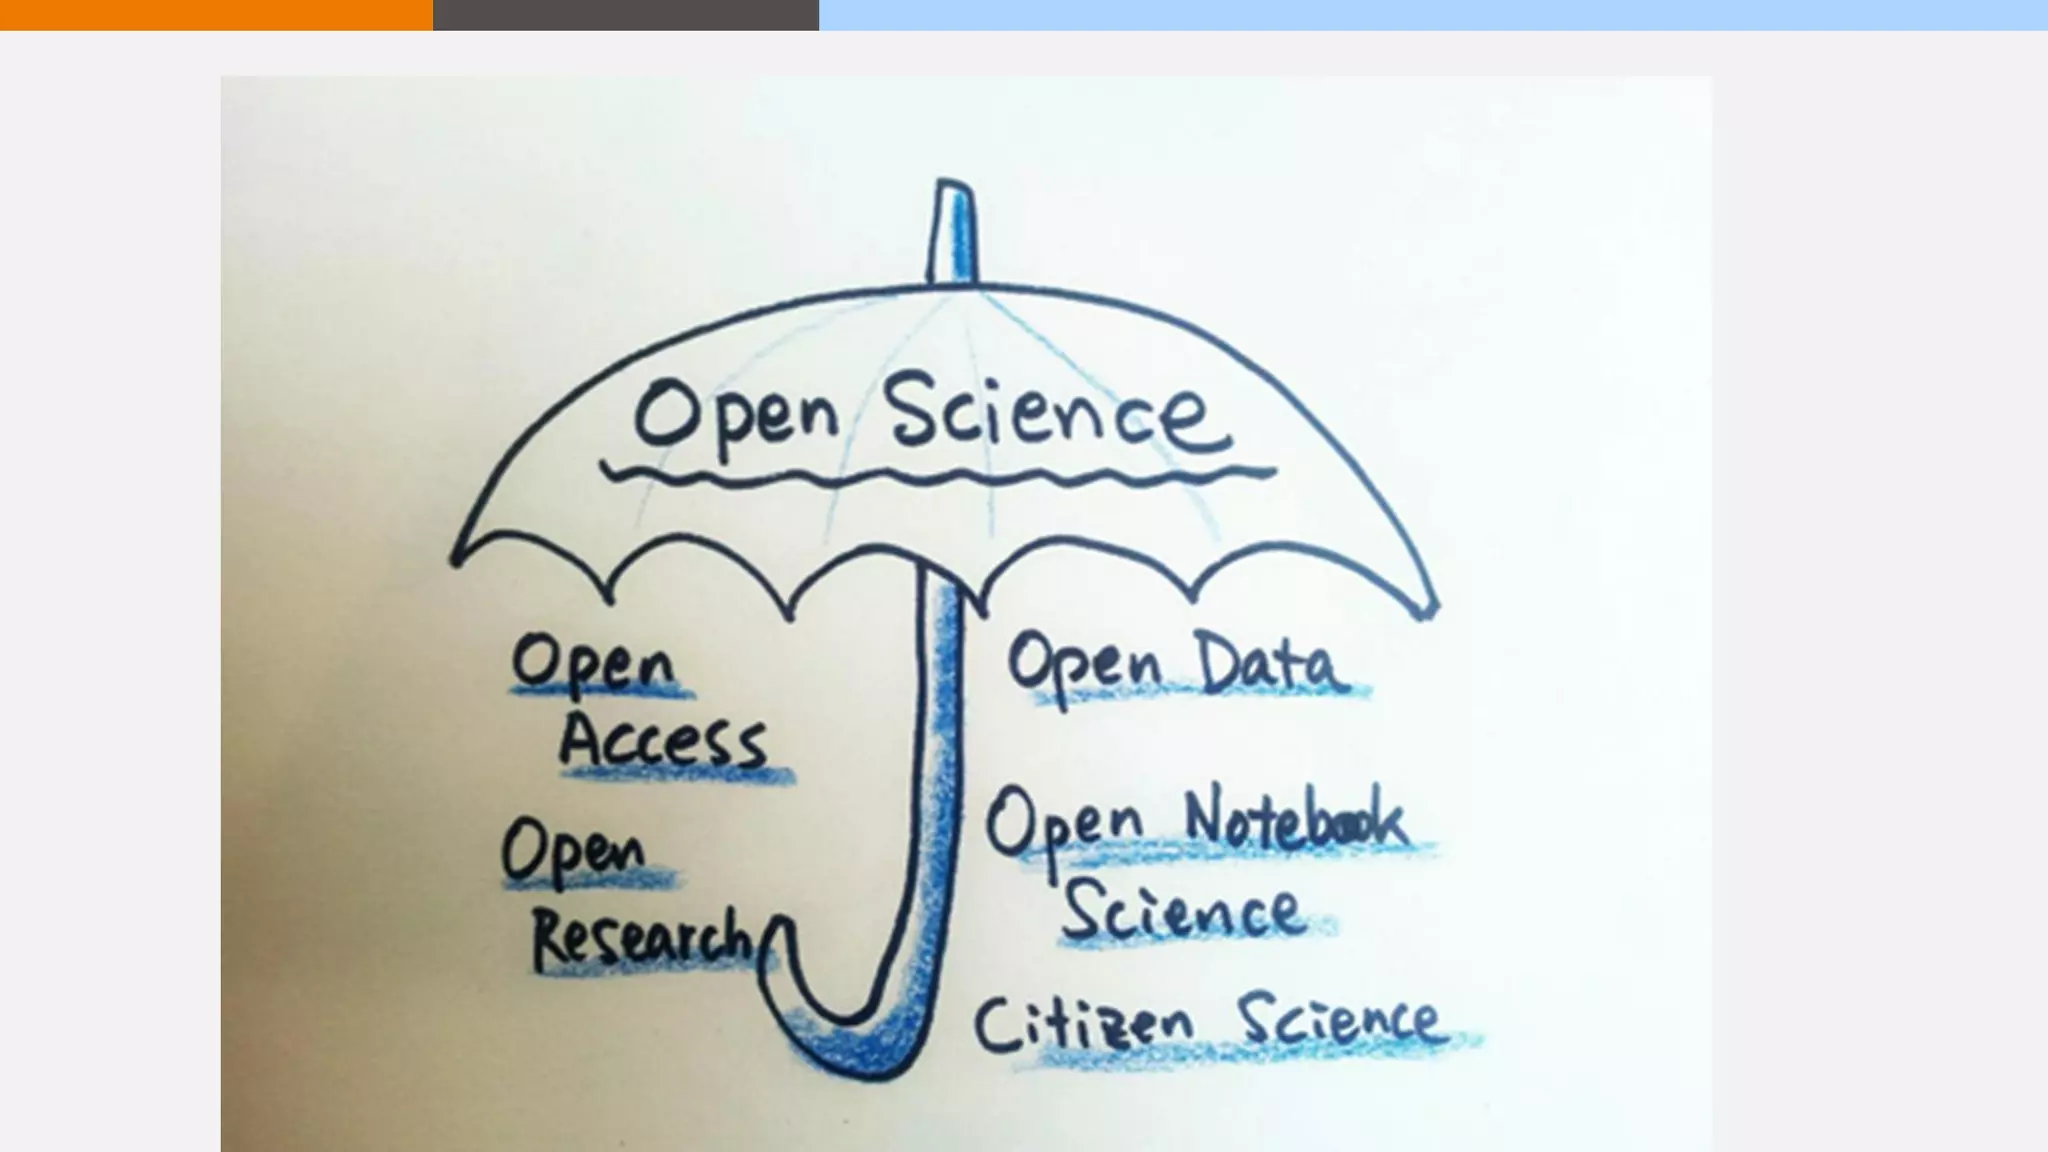 Open Science
Open
Access
Open
Research
Open Data
Open Notebook
Science
Citizen Science